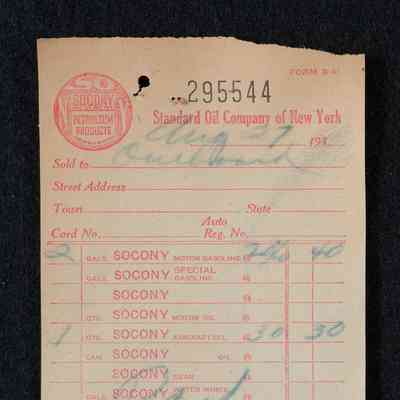 FORM B 4
SOCONY
PETROLEUM
PRODUCTS
295544
Standard Oil Company of New York
Aug 27 193
Sold to
Street Address
Town State
Auto
Card No. Reg. No.
2 GALS. SOCONY MOTOR GASOLINE @ 20 40
GALS. SOCONY SPECIAL GASOLINE @
SOCONY
QTS. SOCONY MOTOR OIL @
1 QTS. SOCONY AIRCRAFT OIL @ 30 30
CAN SOCONY OIL @
SOCONY GEAR @
SOCONY MOTOR
GALS. SOCONY